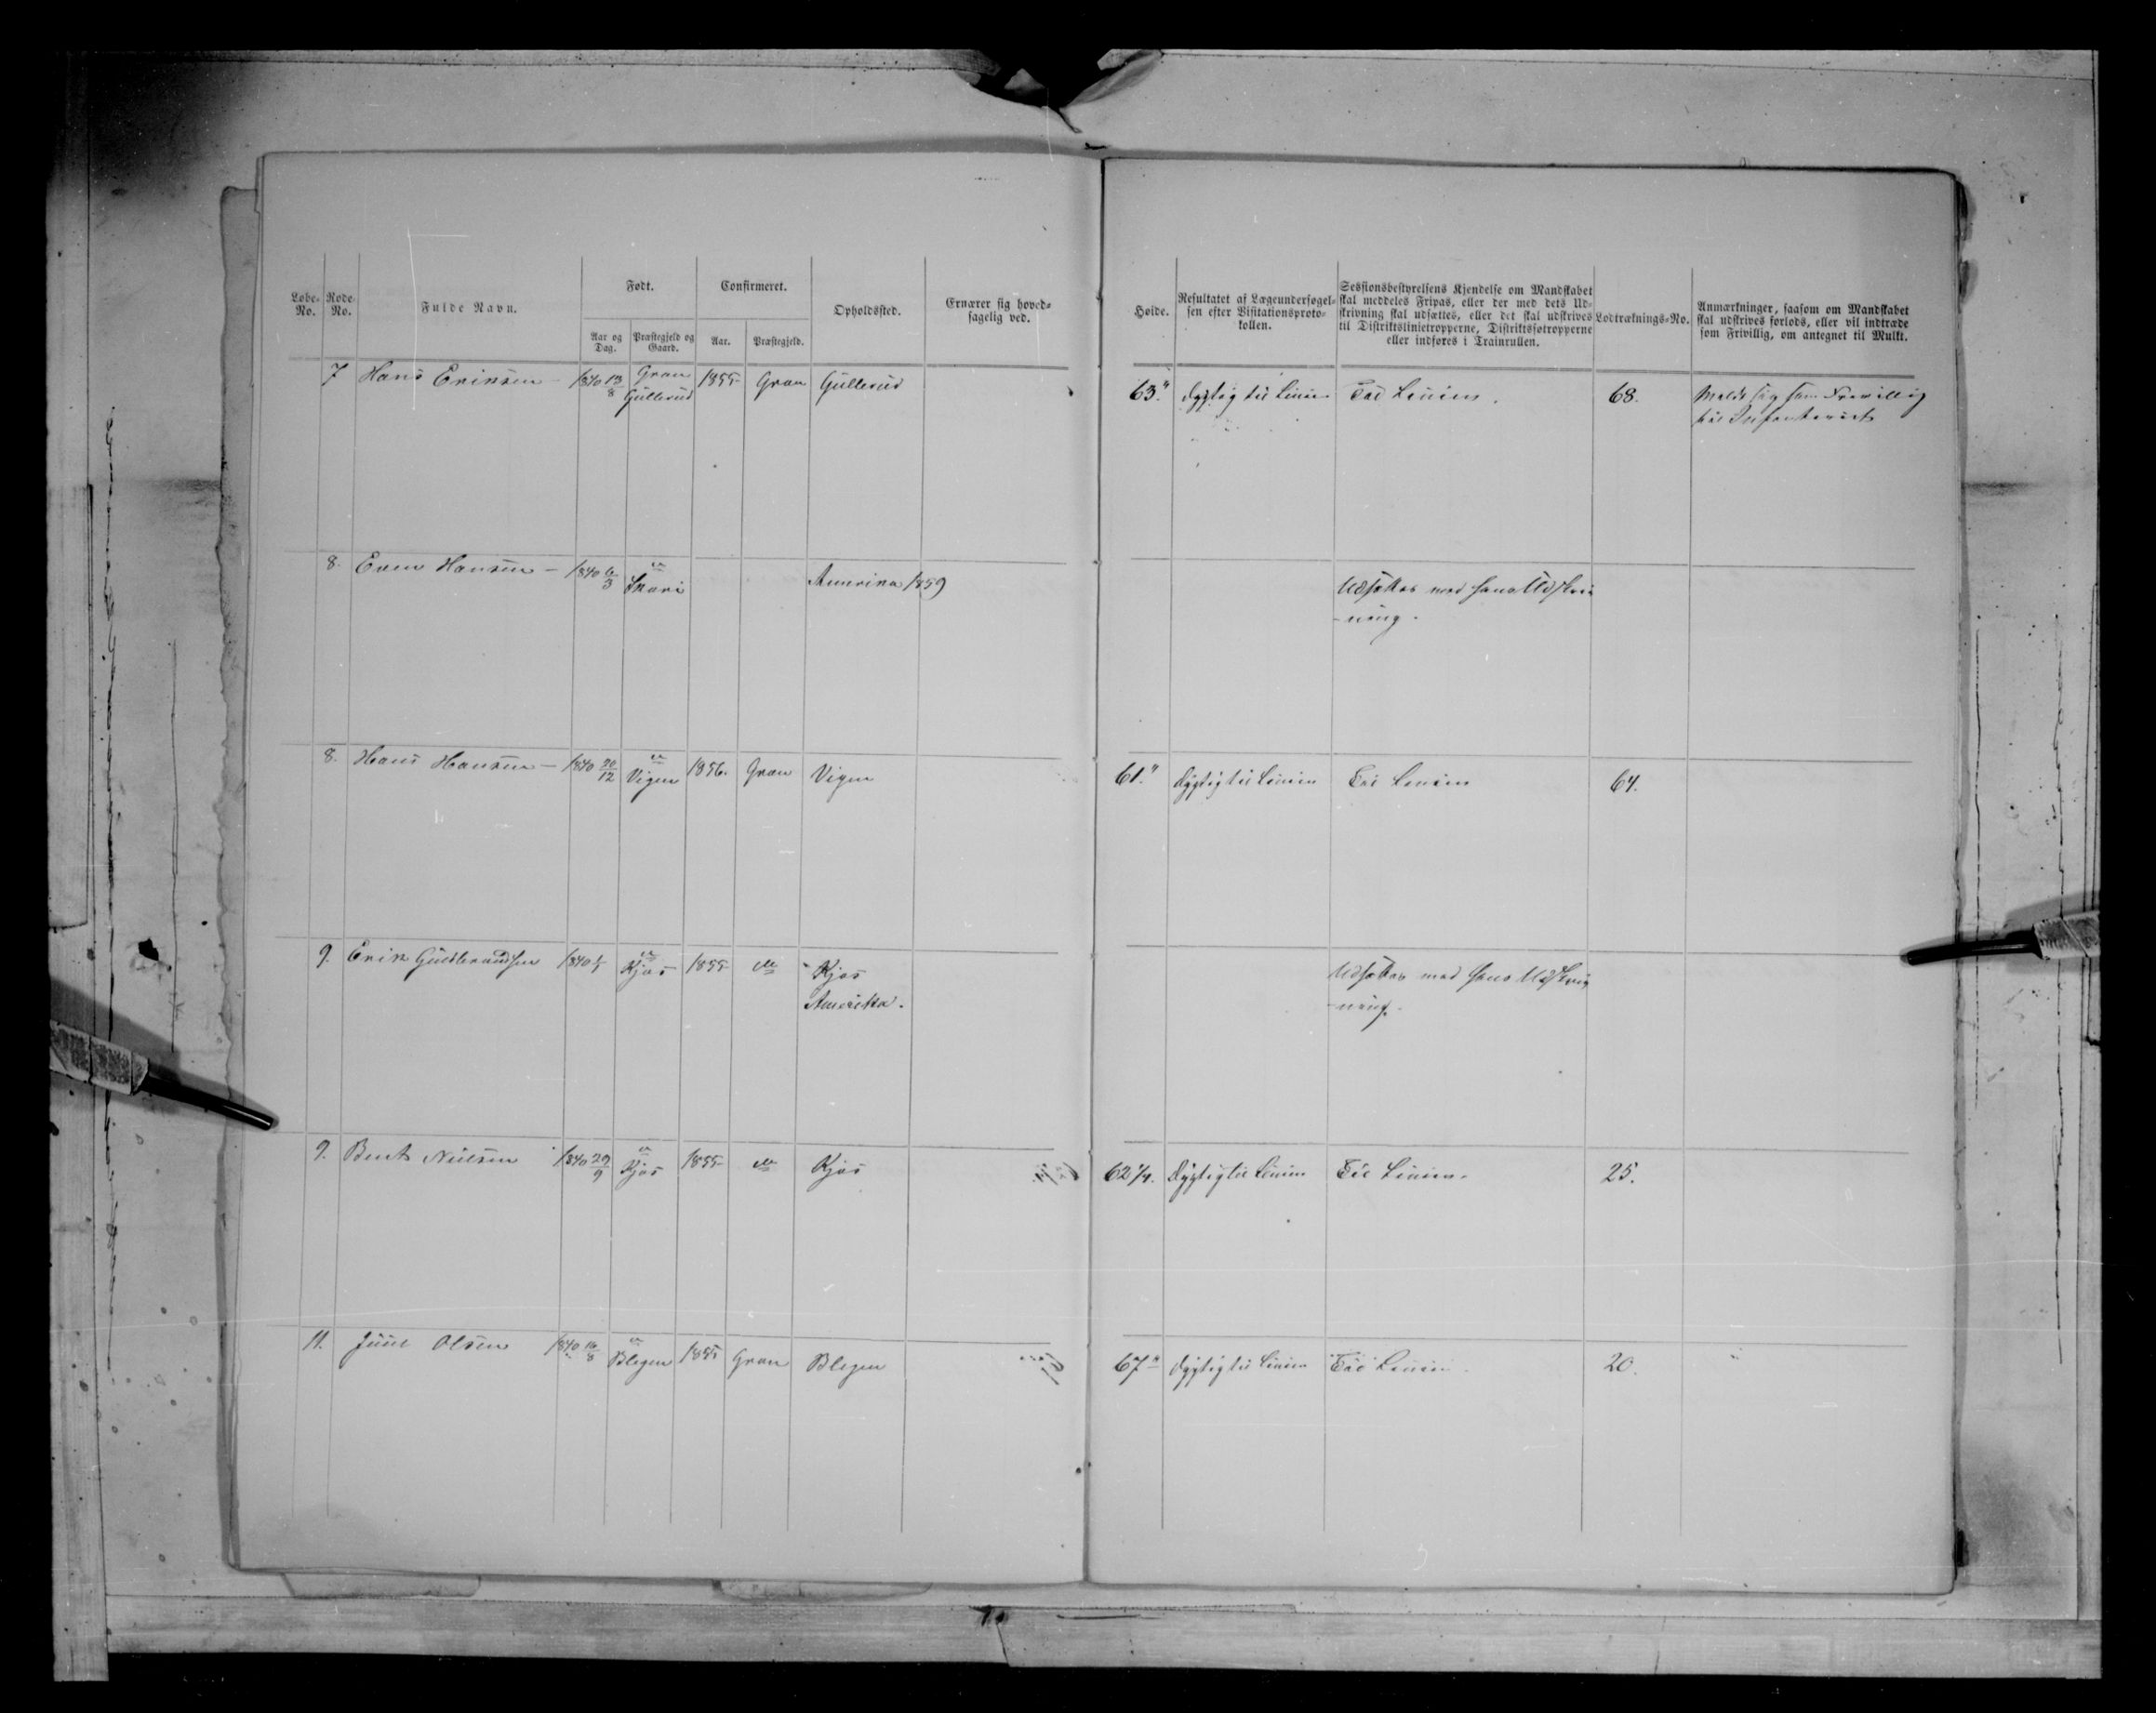 Løbe-No. Rode No. Fulde Navn. Født. Confirmeret. Opholdssted. Ernærer sig hoved-
sagelig ved.
Aar og Dag. Præstegjeld og Gaard. Aar. Præstegjeld.
Høide. Resultatet af Lægeundersøgel-
sen efter Visitationsproto-
kollen.
Sessionsbestyrelsens Kjendelse om Mandskabet
skal meddeles Fripas, eller der med dets Ud-
skrivning skal udsættes, eller det skal udskrives
til Distriktslinietropperne, Distriktsfotropperne
eller indføres i Trainrullen.
Lodtræknings-No.
Anmærkninger, saasom om Mandskabet
skal udskrives forlods, eller vil indtræde
som Frivillig, om antegnet til Mulkt.
7 Hans Eriksen 1840 13/8 Gran Gullerud 1855 Gran Gullerud
63" dygtig til Linien Til Linien. 68. Meldt sig som Frivillig
til Infanteriet
8. Even Hansen - 1840 6/3 do Skari Amerika 1859
Udsættes med hans Udskri
-ning.
8. Hans Hansen - 1840 20/12 do Vigen 1856. Gran Vigen
61" dygtig til Linien Til Linien 64.
9. Erik Guldbrandsen 1840 do Kjos 1855 do Kjos
Amerika.
Udsættes med hans Udskriv
-ning.
9. Bent Nielsen 1840 29/9 do Kjos 1855 do Kjos
62 1/4. dygtig til Linien Til Linien. 25.
11. Juul Olsen 1840 16/8 do Blegen 1855 Gran Blegen
67" dygtig til Linien Til Linien 20.